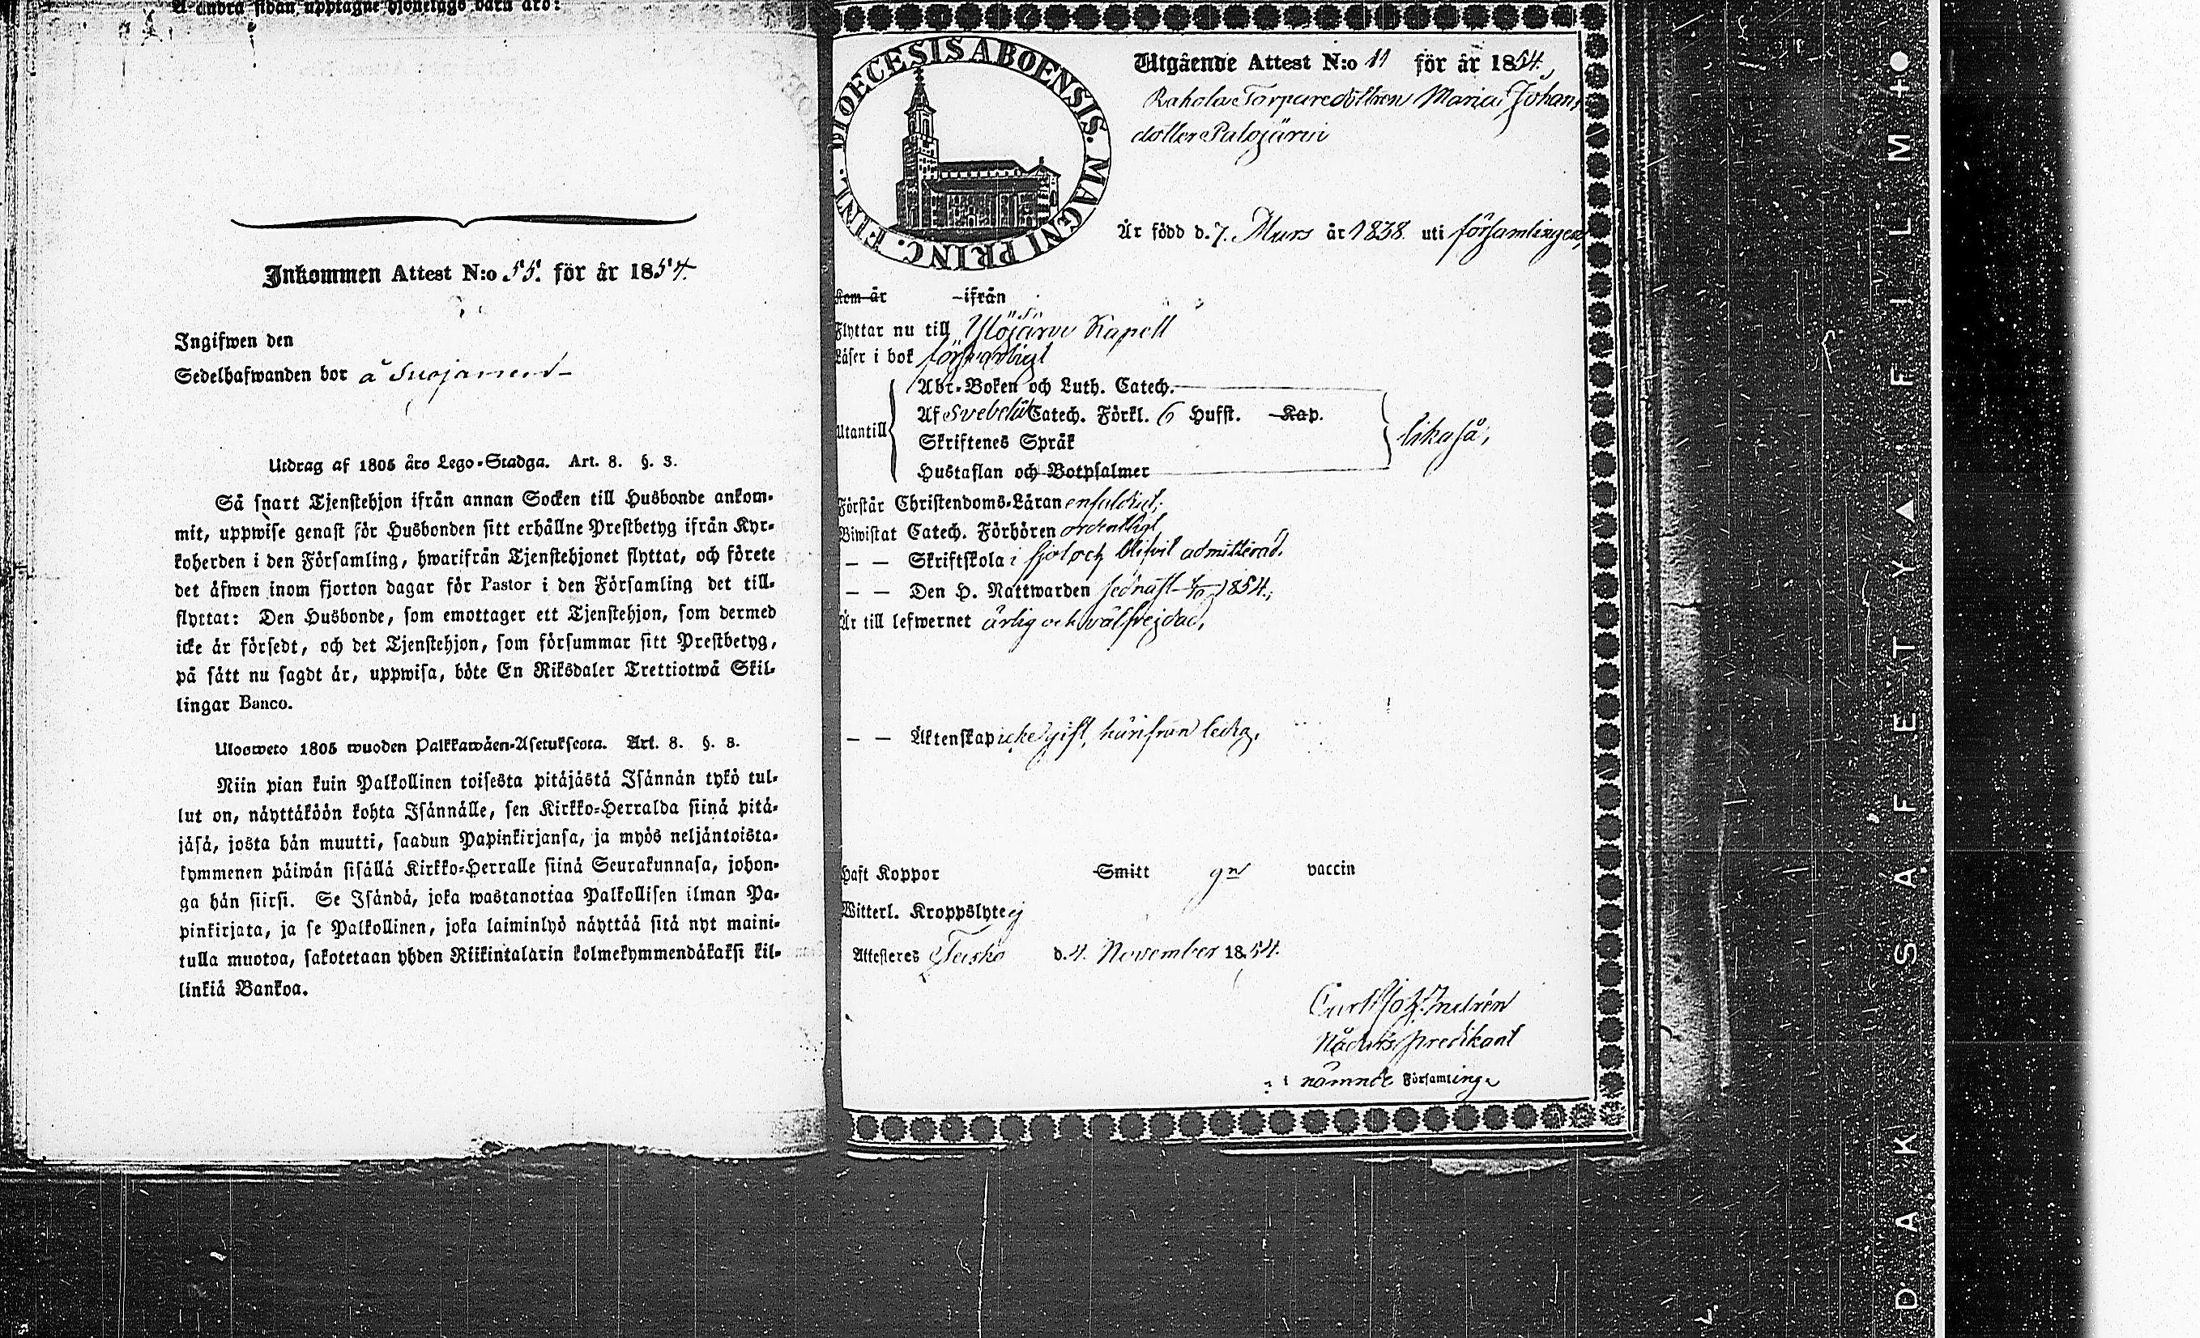 å andra sidan upptagne hjonelags barn äro:
Inkommen Attest N:o 55. för år 1854.
Ingifwen den
Sedelhafwanden bor å
Utdrag af 1805 års Lego-Stadga. Art. 8. §. 3.
Så snart Tjenstehjon ifrån annan Socken till Husbonde ankom-
mit, uppwise genast för Husbonden sitt erhållne Prestbetyg ifrån Kyr-
koherden i den Församling, hwarifrån Tjenstehjonet flyttat, och förete
det äfwen inom fjorton dagar för Pastor i den Församling det till-
flyttat: Den Husbonde, som emottager ett Tjenstehjon, som dermed
icke är försedt, och det Tjenstehjon, som försummar sitt Prestbetyg,
på sätt nu sagdt är, uppwisa, böte En Riksdaler Trettiotwå Skil-
lingar Banco.
Ulosweto 1805 wuoden Palkkawäen-Asetuksesta. Art. 8. §. 3.
Niin pian kuin Palkollinen toisesta pitäjästä Isännän tykö tul-
lut on, näyttäköön kohta Isännälle, sen Kirkko-Herralda siinä pitä-
jäsä, josta hän muutti, saadun Papinkirjansa, ja myös neljäntoista-
kymmenen päiwän sisällä Kirkko-Herralle siinä Seurakunnasa, johon-
ga hän siirsi. Se Isändä, joka wastanottaa Palkollisen ilman Pa-
pinkirjata, ja se Palkollinen, joka laiminlyö näyttää sitä nyt maini-
tulla muotoa, sakotetaan yhden Riikintalarin kolmekymmendäkaksi kil-
linkiä Bankoa.
DIOECESIS ABOENSIS. MAGNI PRINC. FINL.
Utgående Attest N:o 11 för år 1854.
Rahola Torparedottren Maria Johans
dotter Palojärvi
Är född d. 7. Mars år 1838. uti församlingen,
Kom år ifrån
Flyttar nu till Ylöjärvi Kapell
Läser i bok försvarligt
Abc-Boken och Luth. Catech.
Af Svebelii Catech. Förkl. 6 Hufst. Kap.
Utantill
Skriftenes Språk
likaså,
Hustaflan och Botpsalmer
Förstår Christendoms-Läran enfaldigt;
Biwistat Catech. Förhören ordentligt
— — Skriftskola i fjol och blifvit admitterad.
— — Den H. Nattwarden sednast 1854.;
Är till lefwernet ärlig och välfrejdad,
— — Äktenskap icke gift, härifrån ledig.
Haft Koppor Smitt gm vaccin
Witterl. Kroppslyte ej
Attesteres Teisko d. 4. November 1854.
Nådårs predikant
i nämnde Församling.
DAK SAFETY ▲ FILM +●